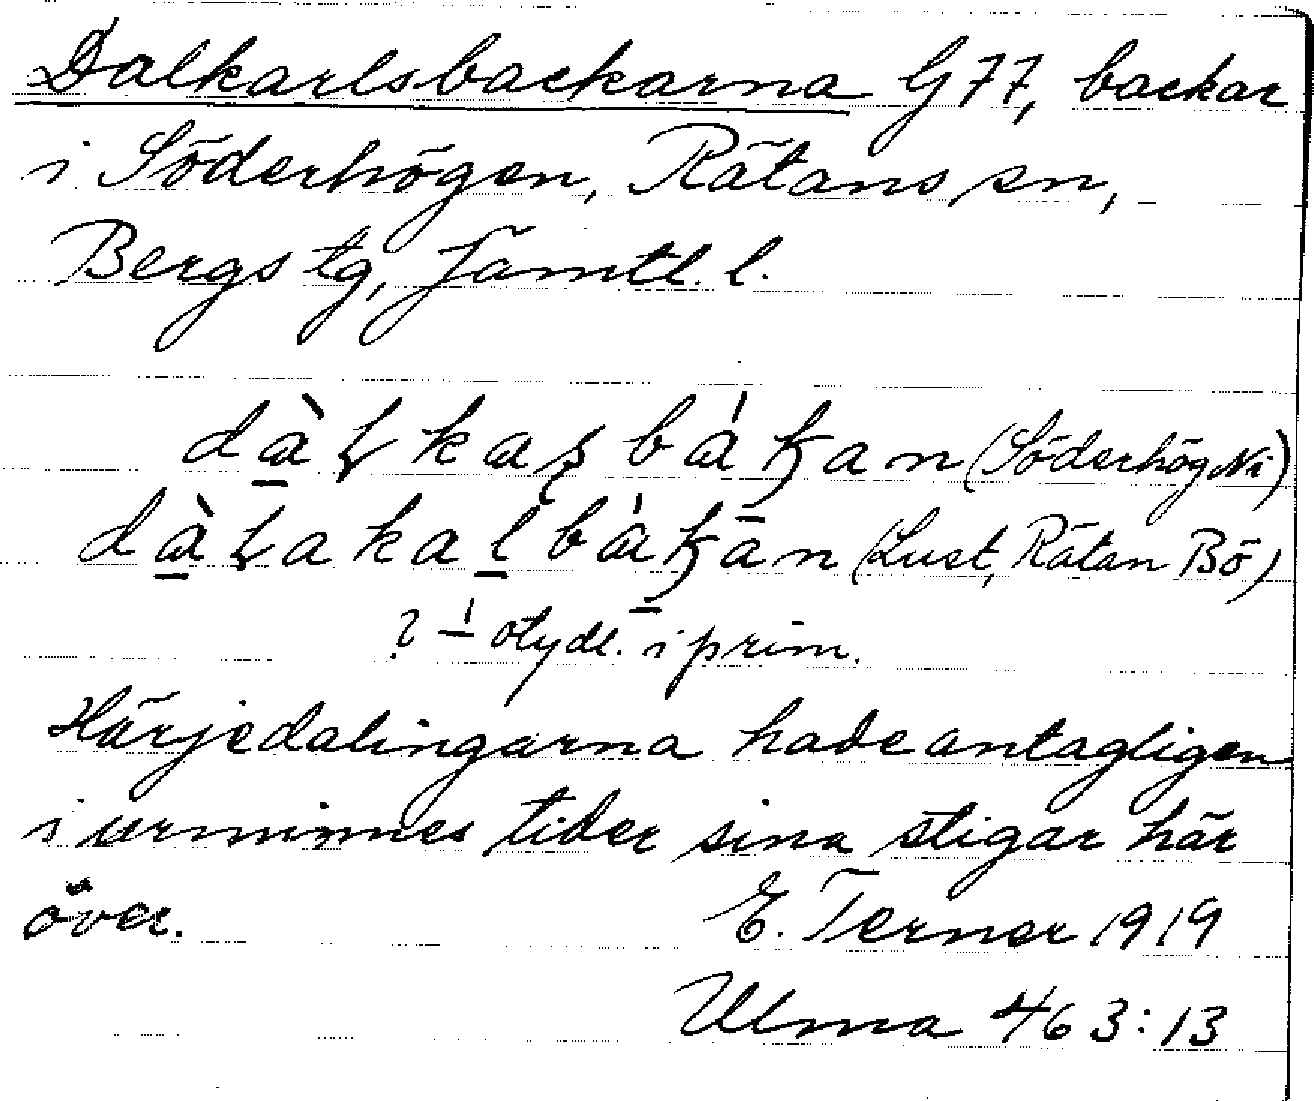 Dalkarlsbackarna G 77, backar
i Söderhögen, Rätans sn,
Bergs tg, Jämtl. l.
(Söderhög Ni)
(Lust, Rätan Bö)
? otydl. i prim.
Härjedalingarna hade antagligen
i urminnes tider sina stigar här
över. E. Terner 1919
Ulma 463:13